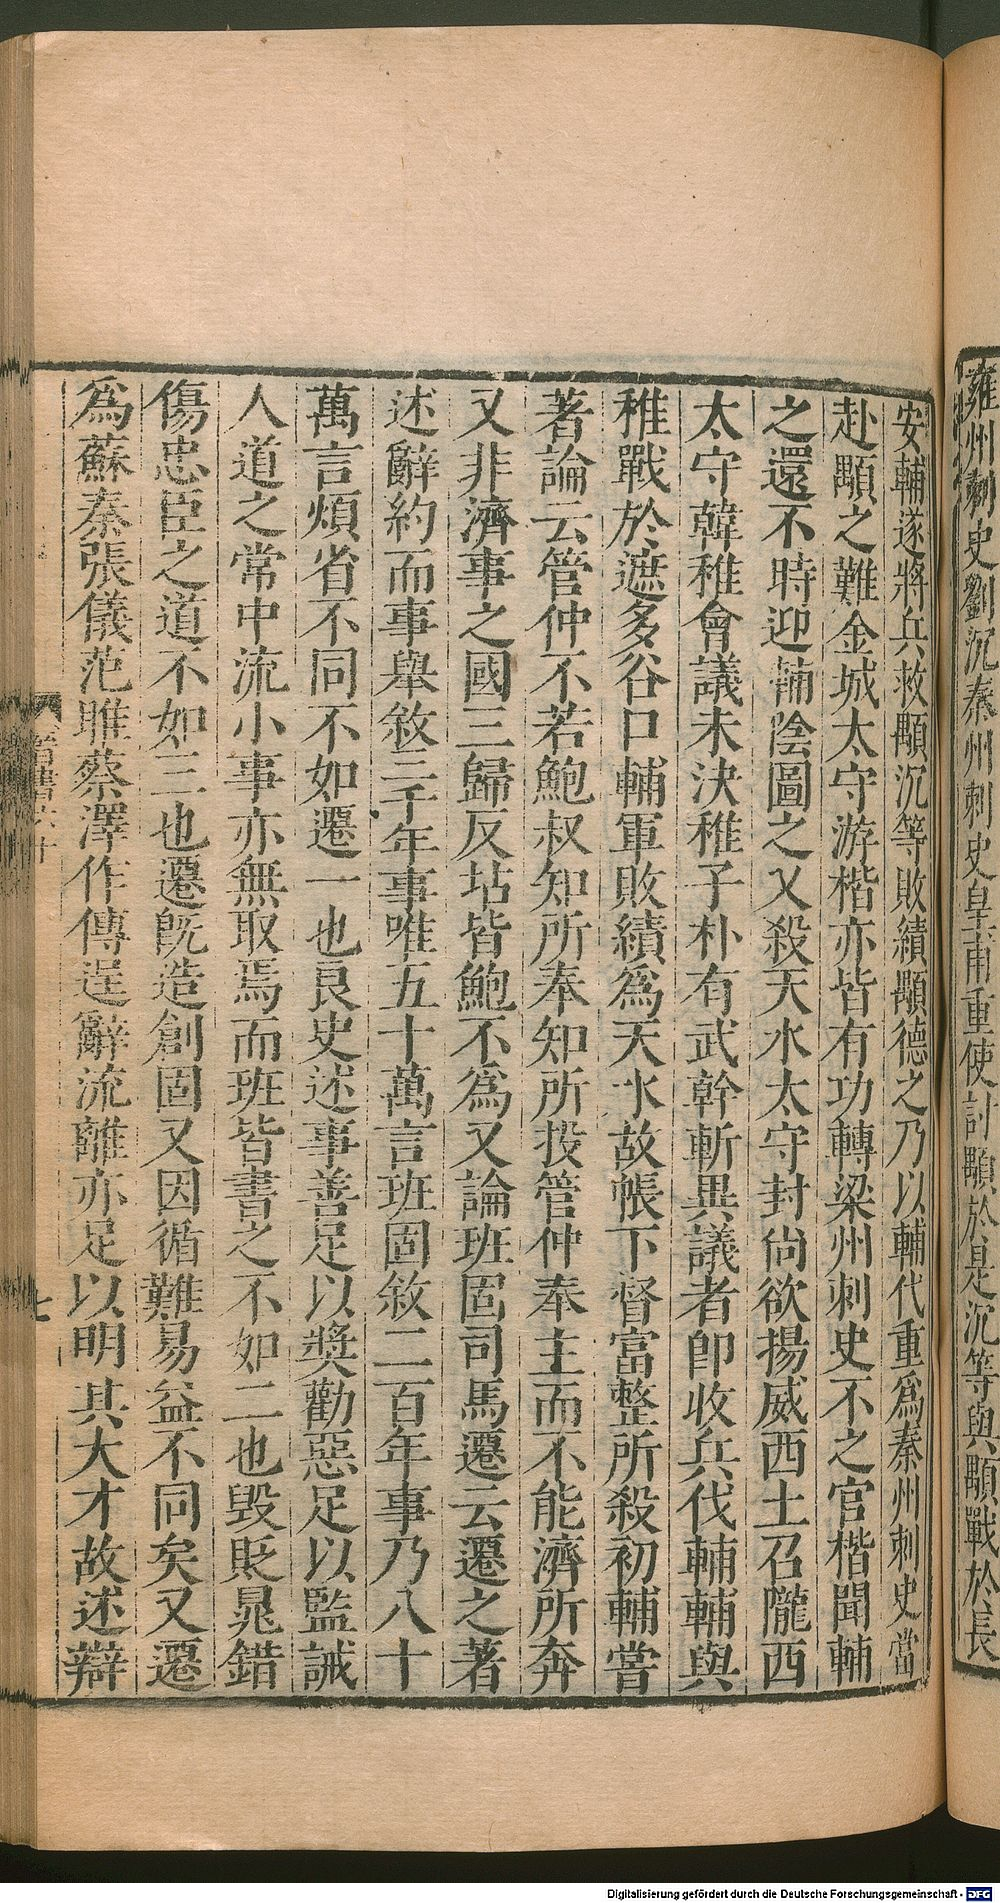 雍州刺史劉沉秦州刺史皇甫重使討顒於是沉等與顒戰於長
安輔遂將兵救顒沉等敗績顒德之乃以輔代重爲秦州刺史當
赴顒之難金城太守游楷亦皆有功轉梁州刺史不之官楷聞輔
之還不時迎輔陰圖之又殺天水太守封尚欲揚威西土召隴西
太守韓稚會議未決稚子朴有武幹斬異議者即收兵伐輔輔與
稚戰於遮多谷口輔軍敗績爲天水故帳下督富整所殺初輔嘗
著論云管仲不若鮑叔知所奉知所投管仲奉主而不能濟所奔
又非濟事之國三歸反坫皆鮑不爲又論班固司馬遷云遷之著
述辭約而事舉敘三千年事唯五十萬言班固敘二百年事乃八十
萬言煩省不同不如遷一也良史述事善足以奬勸惡足以監誡
人道之常中流小事亦無取焉而班皆書之不如二也毀貶晁錯
傷忠臣之道不如三也遷旣造創固又因循難易益不同矣又遷
爲蘇秦張儀范雎蔡澤作傳逞辭流離亦足以明其大才故述辯
晉書六十
七
Digitalisierung gefördert durch die Deutsche Forschungsgemeinschaft - DFG